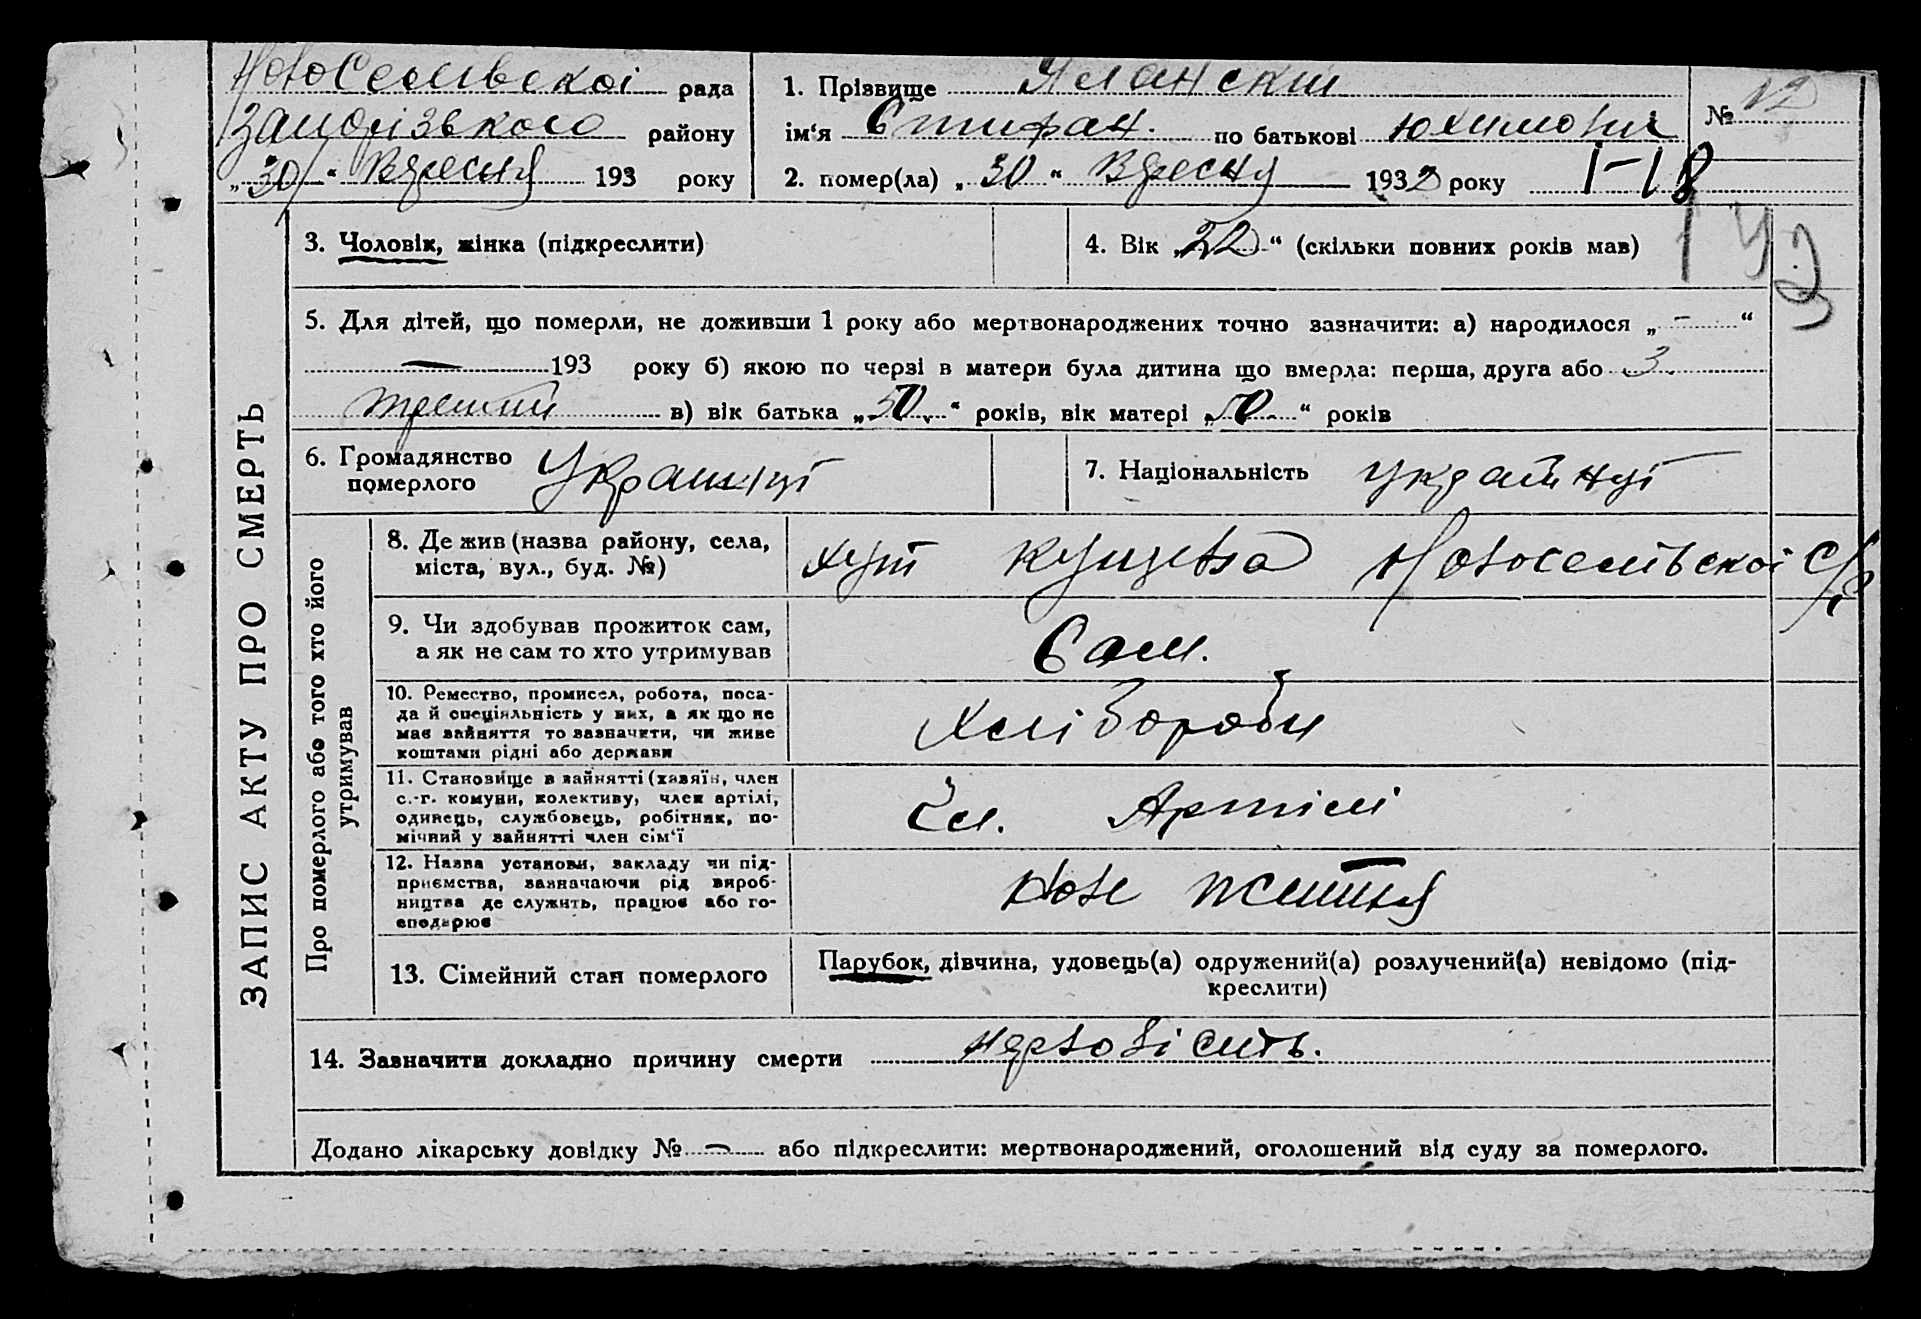 Новоселівскоі рада
Запорізького району
„30“ Вересня 193 року
1. Прізвище Яланский
№ 12
ім‘я Стифан. по батькові Юхимович
2. помер(ла) „30“ Вересня 1932 року 1-18
ЗАПИС АКТУ ПРО СМЕРТЬ
3. Чоловік, жінка (підкреслити)
4. Вік „22“ (скільки повних років мав)
5. Для дітей, що померли, не доживши 1 року або мертвонароджених точно зазначити: а) народилося „-“
— 193 року б) якою по черзі в матери була дитина що вмерла: перша, друга або 3.
третий в) вік батька „50.“ років, вік матері „50.“ років
6. Громадянство
померлого
7. Національність
Про померлого або того хто його
утримував
8. Де жив (назва району, села,
міста, вул., буд. №)
хут Новоселівскоі с/р
9. Чи здобував прожиток сам,
а як не сам то хто утримував
Сам.
10. Ремество, промисел, робота, поса-
да й спеціяльність у них, а як що не
має зайняття то зазначити, чи живе
коштами рідні або держави
Хлібороб
11. Становище в зайнятті (хазяїн, член
с.-г. комуни, колективу, член артілі,
одинець, службовець, робітник, по-
мічний у зайнятті член сім‘ї
Чл. Артілі
12. Назва установи, закладу чи під-
приємства, зазначаючи рід вироб-
ництва де служить, працює або го-
сподарює
Нове життя
13. Сімейний стан померлого
Парубок, дівчина, удовець(а) одружений(а) розлучений(а) невідомо (під-
креслити)
14. Зазначити докладно причину смерти
Додано лікарську довідку № - або підкреслити: мертвонароджений, оголошений від суду за померлого.